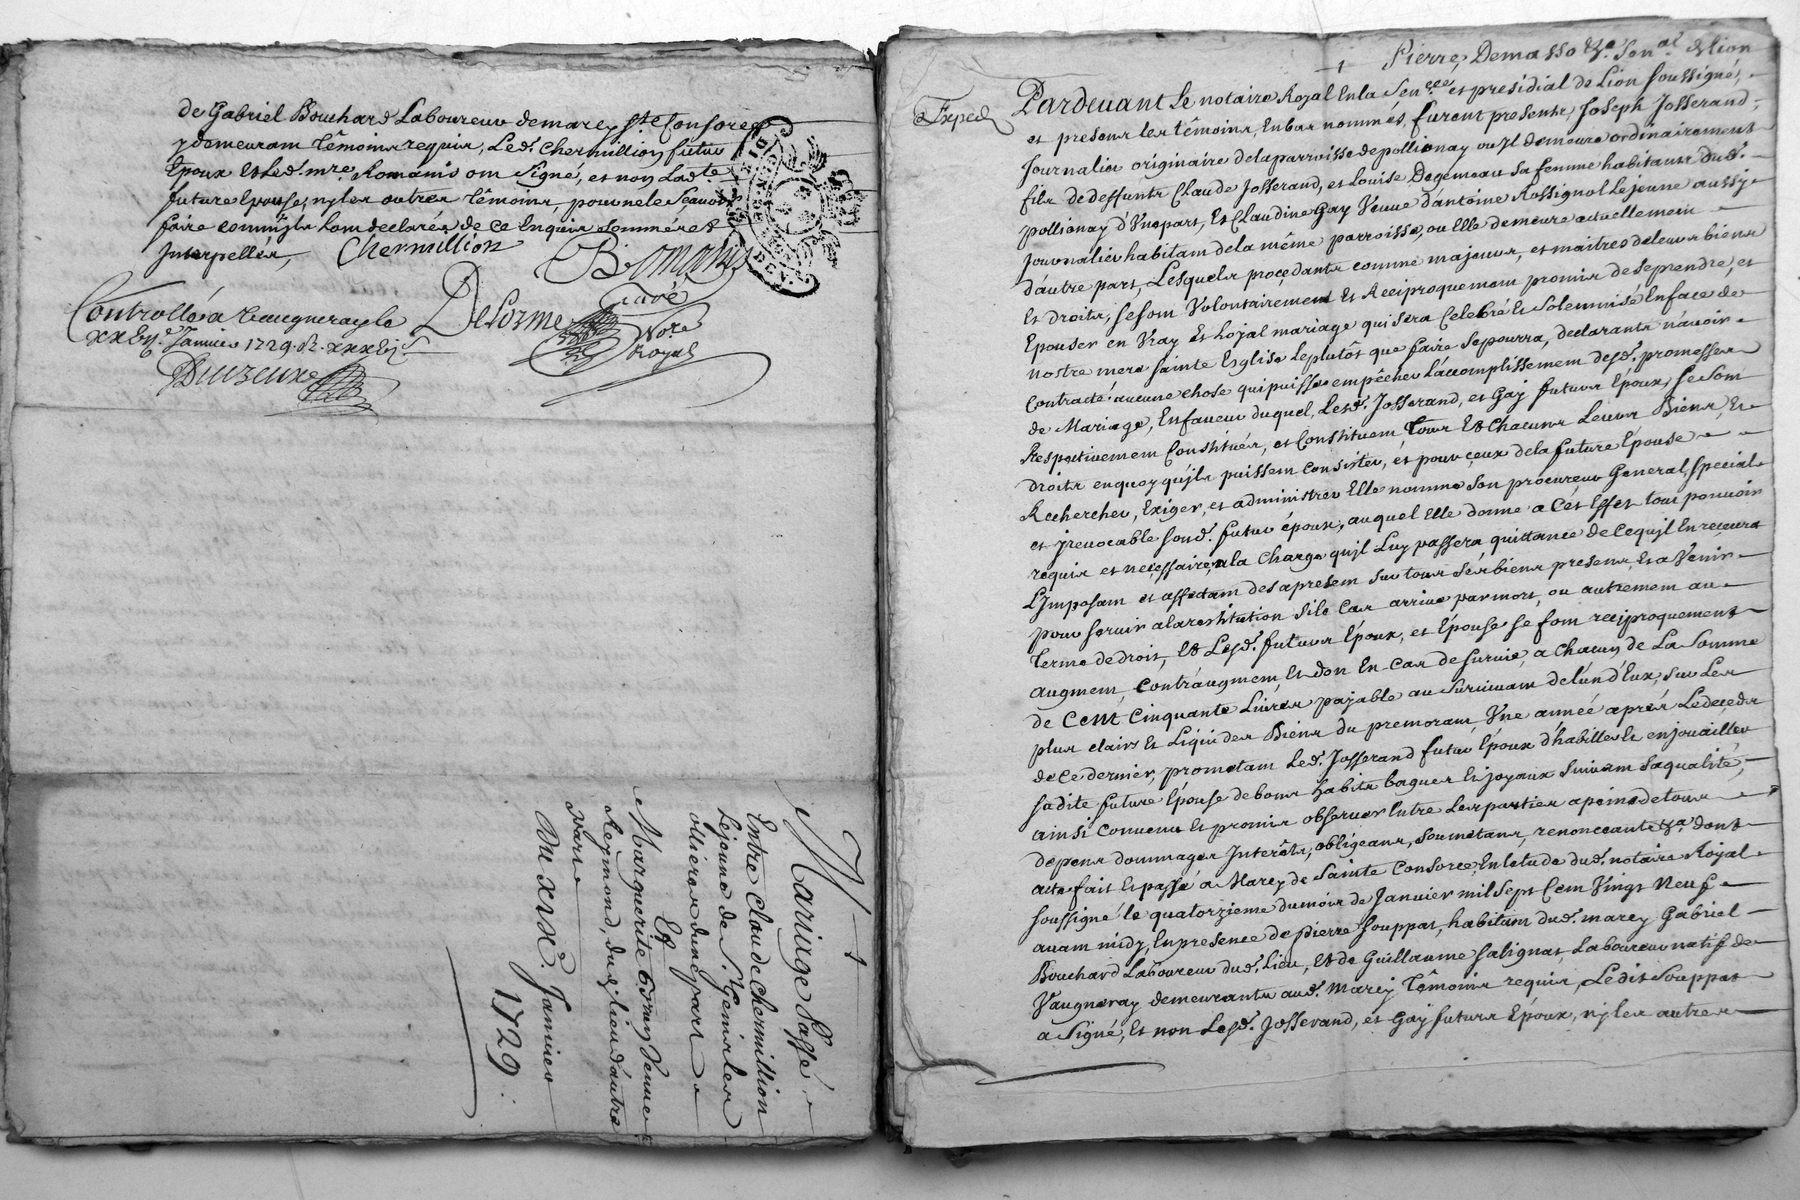 de Gabriel Bouchard Laboureur demarcy ste Consorce
y demeurant têmoins requis, Led. Chermillion futur
Epoux et Led. mre. Romanis ont Signé, et non Ladte.
future Epouse, ny les autres têmoins, pour ne le Scavoir
faire comm'ils l'ont declarés de ce Enquis Sommérés
Interpellés,
Chermillion
BRomanis
Controllé a vaugneray le
Janvier 1729. R.
Delorme
Gravé
Nore
Royal
Duzeuxe
+
Mariage Passé
Entre Claude Chermillion
Lejeune de St. Genis les
ollieres d'une part
Et
Marguerite Veuve
Reymond, dud. lieu d'autre
part
Du xixe. Janvier
1729.
+ Pierre, Demasso &a. Senal. de Lion
Exped
Pardevant Le notaire Royal En la Sencée. et presidial de Lion Soussigné,
et presens les têmoins, En bas nommés, furent presents, Joseph Josserand,
Journalier originaire de la parroisse de pollionay ou Il demeure ordinairement
fils de deffunts Claude Josserand, et Louise Degemeau Sa femme habitants dud.
pollionay d'Une part, Et Claudine Gay Veuve d'antoine Rossignol Lejeune aussy
Journalier habitant de la même parroisse, ou Elle demeure actuellement
d'autre part, Lesquels procedants comme majeurs, et maitres de leurs biens
Et droits, se sont Volontairement Et Reciproquement promis de se prendre, et
Epouser en Vray et Loyal mariage qui sera Celebré Et Solemnisé En face de
nostre mere Sainte Eglise Leplutôt que faire Se pourra, declarants n'avoir
Contracté aucune chose qui puisse empêcher l'accomplissement desd. promesses
de Mariage, En faveur duquel, Lesd. Josserand, et Gay futurs Epoux, Se Sont
Respectivement Constitués, et Constituent Tous Et Chacuns Leurs Biens, Et
droits en quoy qu'ils puissent consister, et pour ceux de la future Epouse
Rechercher, Exiger, et administrer Elle nomme Son procureur General, special
et irevocable Sond. futur époux, auquel elle donne a cés Effet tout pouvoir
requis et necessaire, a la Charge qu'il Luy passera quittance de ce qu'il En recevra
L'Imposant et affectant des apresent Sur tous Ses biens presens, Et a Venir
pour Servir a la restitution Si le Cas arrive par mort, ou autrement au
Terme de droit, Et Lesd. futurs Epoux, et Epouse Se font reciproquement
augment, Contr'augment Et don En Cas de Survie, a Chacun de La Somme
de Cent Cinquante Livres payable au Survivant de l'un d'Eux, Sur Les
plus clairs Et Liquides Biens du premorant Une année aprés Ledeceds
de ce dernier, promettant Led. Josserand futur Epoux d'habiller Et enjouailler
Sadite future Epouse de bons habits bagues Et joyaux Suivant Sa qualité,
ainsi Convenu Et promis observer Entre Les parties a peine de tous
depens dommages Interêts, obligeans, Soumettans, renonceants &a. dont
acte fait Et passé a Marcy de Sainte Consorce En letude dud. notaire Royal
Soussigné le quatorzieme du mois de Janvier mil Sept Cent Vingt Neuf
avant midy, En presence de pierre Souppat, habitant dud. marcy Gabriel
Bouchard Laboureur dud. Lieu, Et de Guillaume Salignat Laboureur natif de
Vaugneray demeurants aud. Marcy Têmoins requis, Ledit Souppat
a Signé, Et non Lesd. Josserand, et Gay futurs Epoux, ny les autres